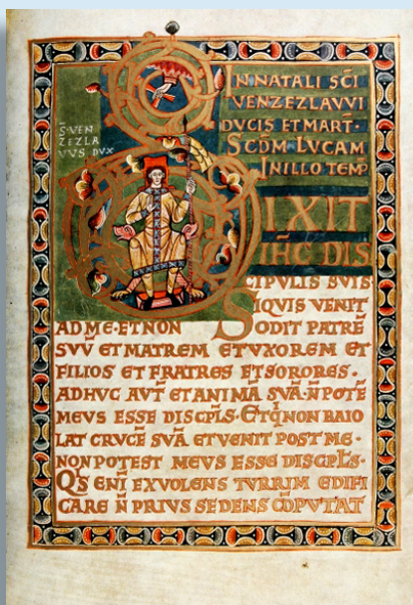 IN NATALI SCI
VENZEZLAVVI
DVCIS ET MART·
SCDM LVCAM
IN ILLO TEMP
S· VEN
ZEZLA
VVS DVX
DIXIT
IHC DIS
CIPVLIS SVIS
SIQVIS VENIT
AD ME· ET NON ODIT PATRE
SVV ET MATREM ET VXOREM ET
FILIOS ET FRATRES ET SORORES·
ADHVC AVT ET ANIMA SVA· N POTE
MEVS ESSE DISCPLS· ET Q NON BAIO
LAT CRVCE SVA ET VENIT POST ME·
NON POTEST MEVS ESSE DISCPLS·
QS ENI EX VOLENS TVRRIM EDIFI
CARE N PRIVS SEDENS COPVTAT